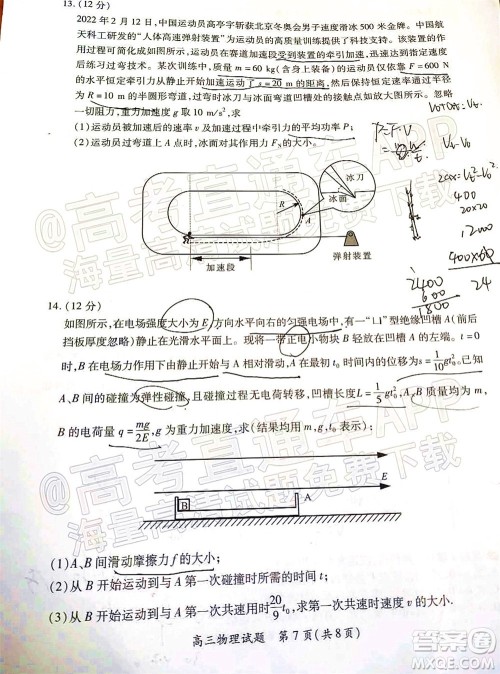 13. (12分)
2022年2月12日,中国运动员高亭宇斩获北京冬奥会男子速度滑冰500米金牌。中国航
天科工研发的“人体高速弹射装置”为运动员的高质量训练提供了科技支持。该装置的
作用过程可简化成如图所示,运动员在赛道加速段受到装置的牵引加速,迅速达到指定速度
后练习过弯技术。某次训练中,质量m=60 kg(含身上装备)的运动员仅依靠F=600 N
的水平恒定牵引力从静止开始加速运动了s=20 m的距离,然后保持恒定速率通过半径
为R=10 m的半圆形弯道,过弯时冰刀与冰面弯道凹槽处的接触点如放大图所示。忽略
一切阻力,重力加速度g取10 m/s²,求
(1)运动员被加速后的速率v及加速过程中牵引力的平均功率P;
(2)运动员过弯道上A点时,冰面对其作用力F_N的大小。
冰刀
冰面
R
A
加速段
弹射装置
P=F·V
400
20×20
12000
2400
600
1800
24
14. (12分)
如图所示,在电场强度大小为E、方向水平向右的匀强电场中,有一“凵”型绝缘凹槽A(前后
挡板厚度忽略)静止在光滑水平面上。现将一带正电小物块B轻放在凹槽A的左端。t=0
时,B在电场力作用下由静止开始与A相对滑动,A在最初t₀时间内的位移为s=1/10 gt₀²。已知
A、B间的碰撞为弹性碰撞,且碰撞过程无电荷转移,凹槽长度L=1/5 gt₀²,A、B质量均为m,
B的电荷量q=mg/2E,g为重力加速度,求(结果均用m、g、t₀表示)
E
B
A
(1)A、B间滑动摩擦力f的大小;
(2)从B开始运动到与A第一次碰撞时所需的时间t;
(3)从B开始运动到与A第一次共速用时20/9 t₀,求第一次共速时速度v的大小。
高三物理试题 第7页(共8页)
@高考直通车APP
海量高清试题免费下载
@高考直通车APP
海量高清试题免费下载
答案圈